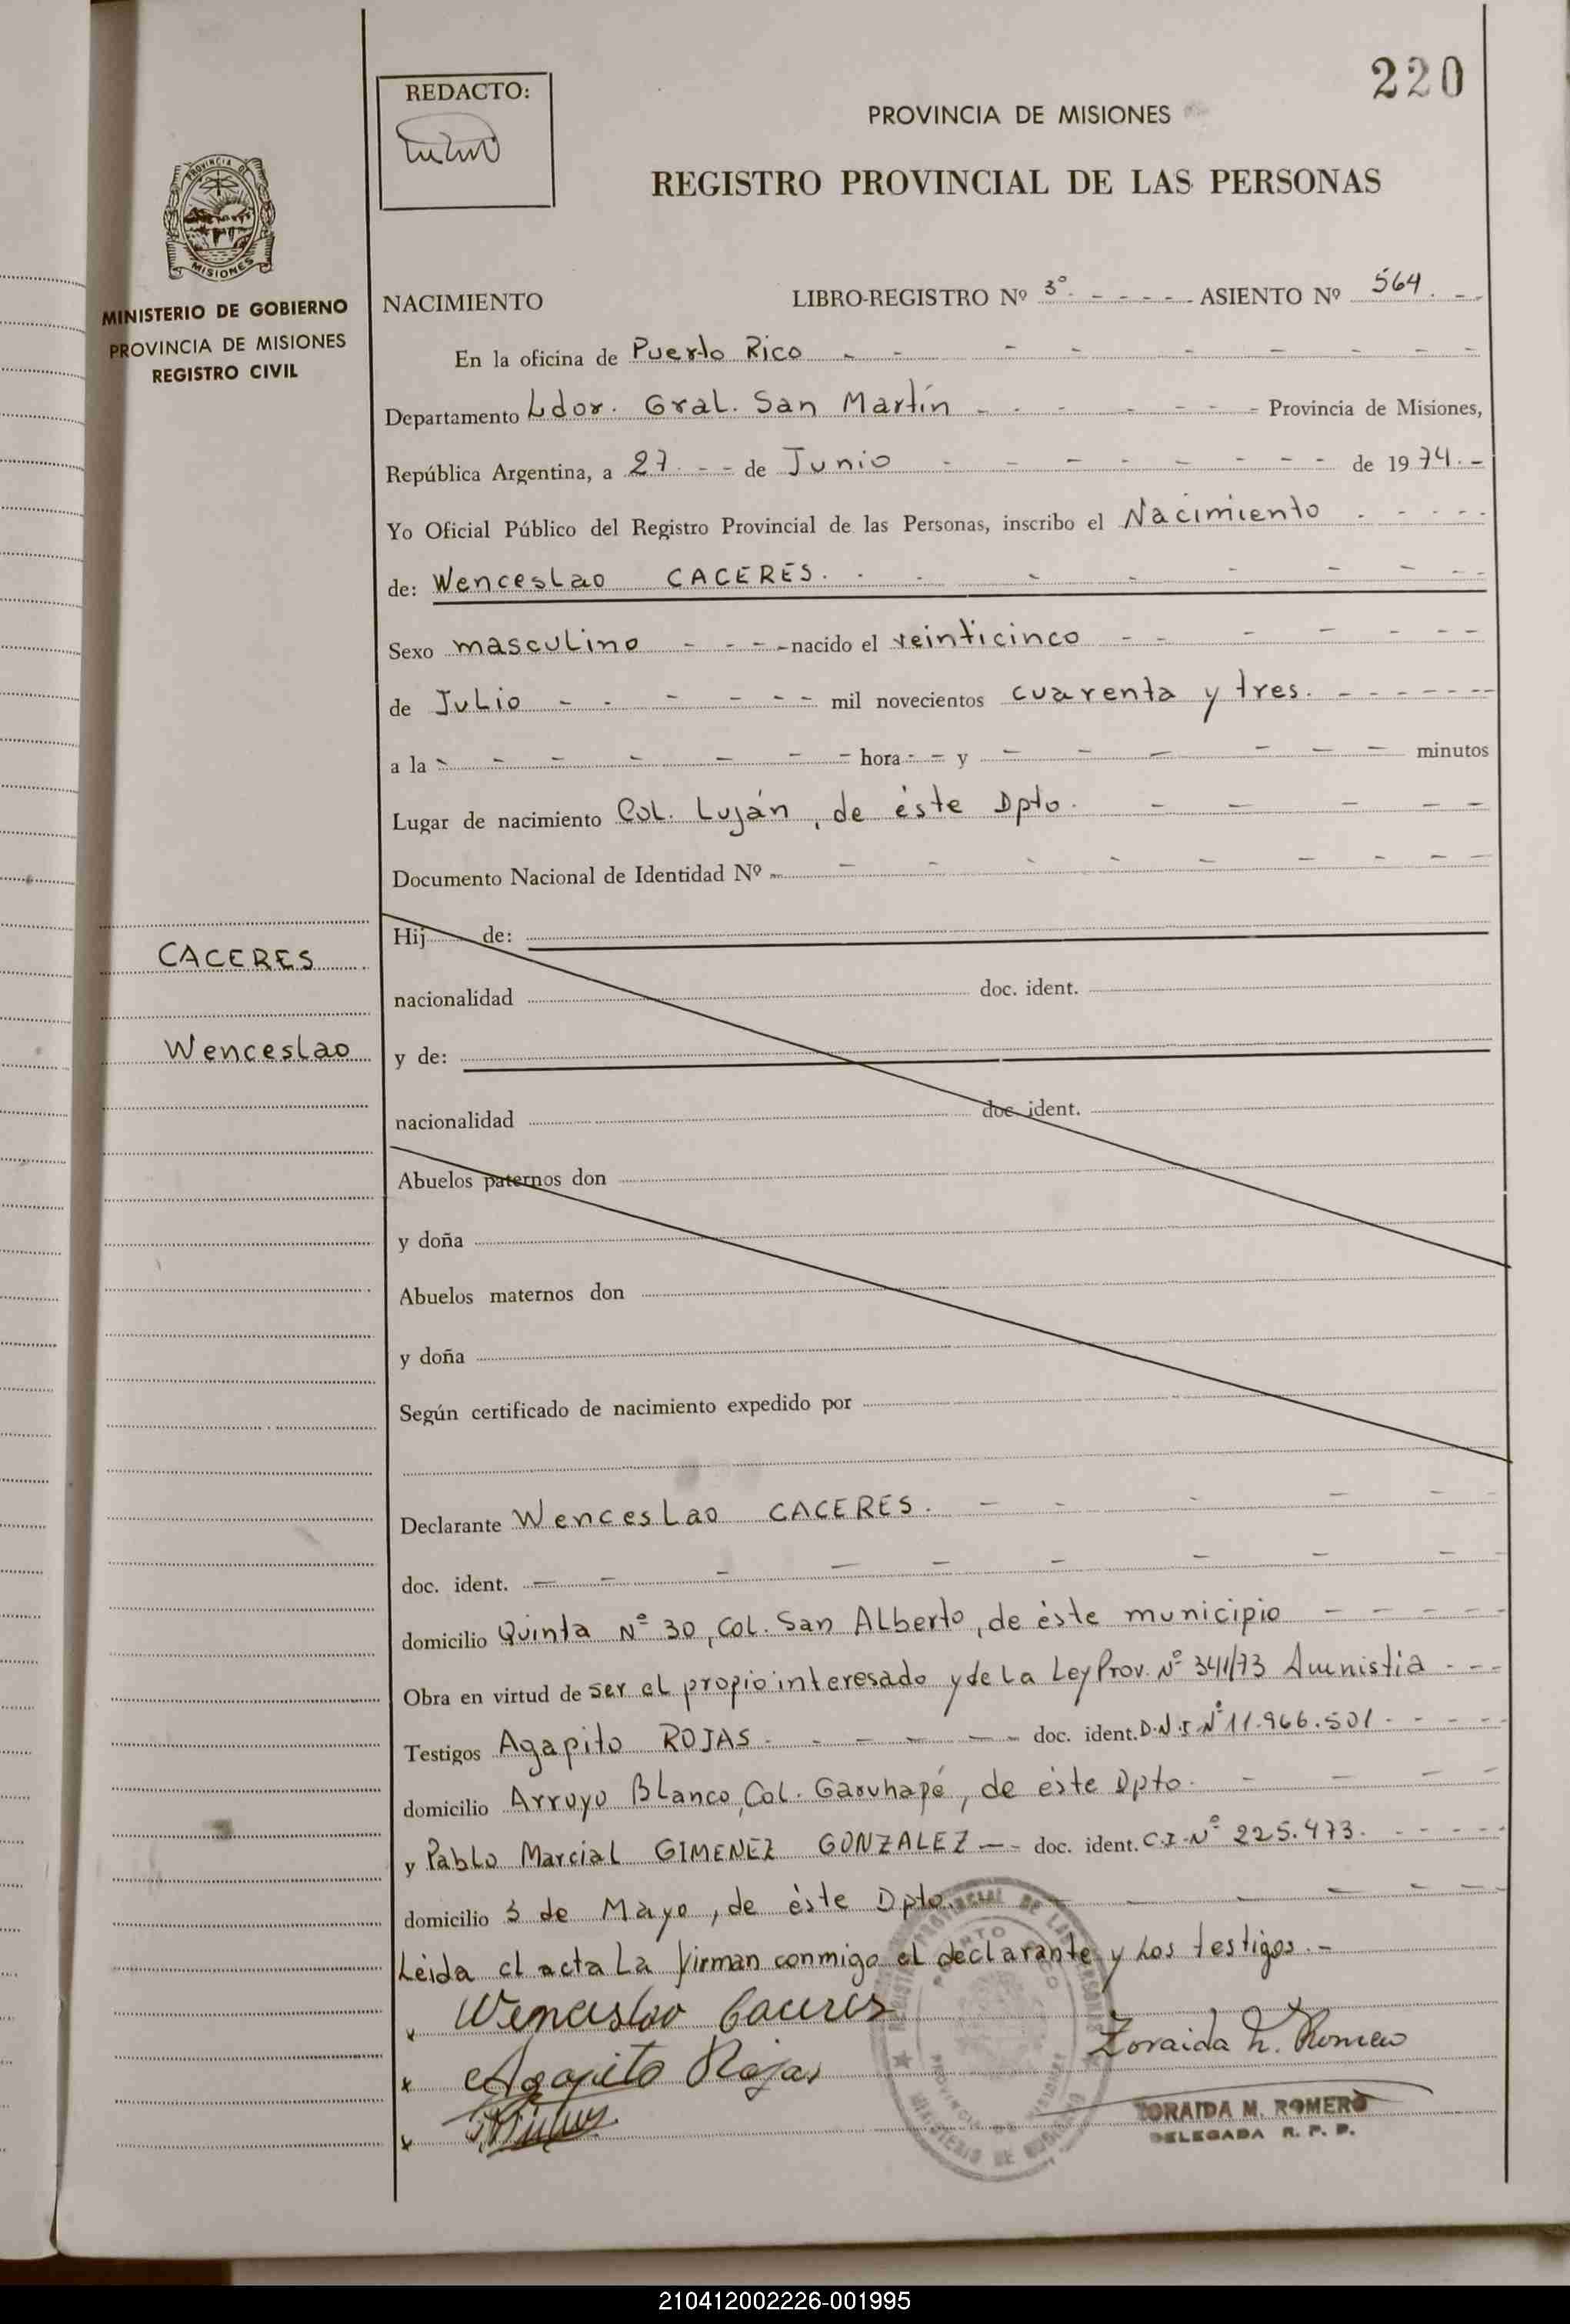 220
REDACTO:
PROVINCIA DE MISIONES
REGISTRO PROVINCIAL DE LAS PERSONAS
PROVINCIA DE
MISIONES
MINISTERIO DE GOBIERNO
PROVINCIA DE MISIONES
REGISTRO CIVIL
NACIMIENTO LIBRO-REGISTRO Nº 3º - - - - - ASIENTO Nº 564. - -
En la oficina de Puerto Rico - - - - - - - - -
Departamento Ldor. Gral. San Martín - - - - - - - Provincia de Misiones,
República Argentina, a 27 - - de Junio - - - - - - - - de 1974.-
Yo Oficial Público del Registro Provincial de las Personas, inscribo el Nacimiento - - - - -
de: Wenceslao CACERES. - - - - - - - -
Sexo masculino - - - - nacido el veinticinco - - - - - - -
de Julio - - - - - - mil novecientos cuarenta y tres. - - - - - - -
a la - - - - - - - hora - - y - - - - - - minutos
Lugar de nacimiento Col. Luján, de éste Dpto. - - - - -
Documento Nacional de Identidad Nº - - - - - - - - - -
CACERES
Wenceslao
Hij de:
nacionalidad doc. ident.
y de:
nacionalidad doc. ident.
Abuelos paternos don
y doña
Abuelos maternos don
y doña
Según certificado de nacimiento expedido por
Declarante Wenceslao CACERES. - - - - -
doc. ident. - - - - - - - - -
domicilio Quinta Nº 30, Col. San Alberto, de éste municipio - - - - -
Obra en virtud de ser el propio interesado y de la Ley Prov. Nº 341/73 Amnistia - - -
Testigos Agapito ROJAS - - - - - - doc. ident. D.N.I. Nº 11.966.501 - - - -
domicilio Arroyo Blanco, Col. Garuhapé, de éste Dpto. - - - -
y Pablo Marcial GIMENEZ GONZALEZ - - doc. ident. C.I. Nº 225.473. - - - - -
domicilio 3 de Mayo, de éste Dpto. - - - - -
Léida el acta la firman conmigo el declarante y los testigos.-
x Wenceslao Caceres
x Agapito Rojas
x
Zoraida M. Romero
ZORAIDA M. ROMERO
DELEGADA R. P. P.
210412002226-001995